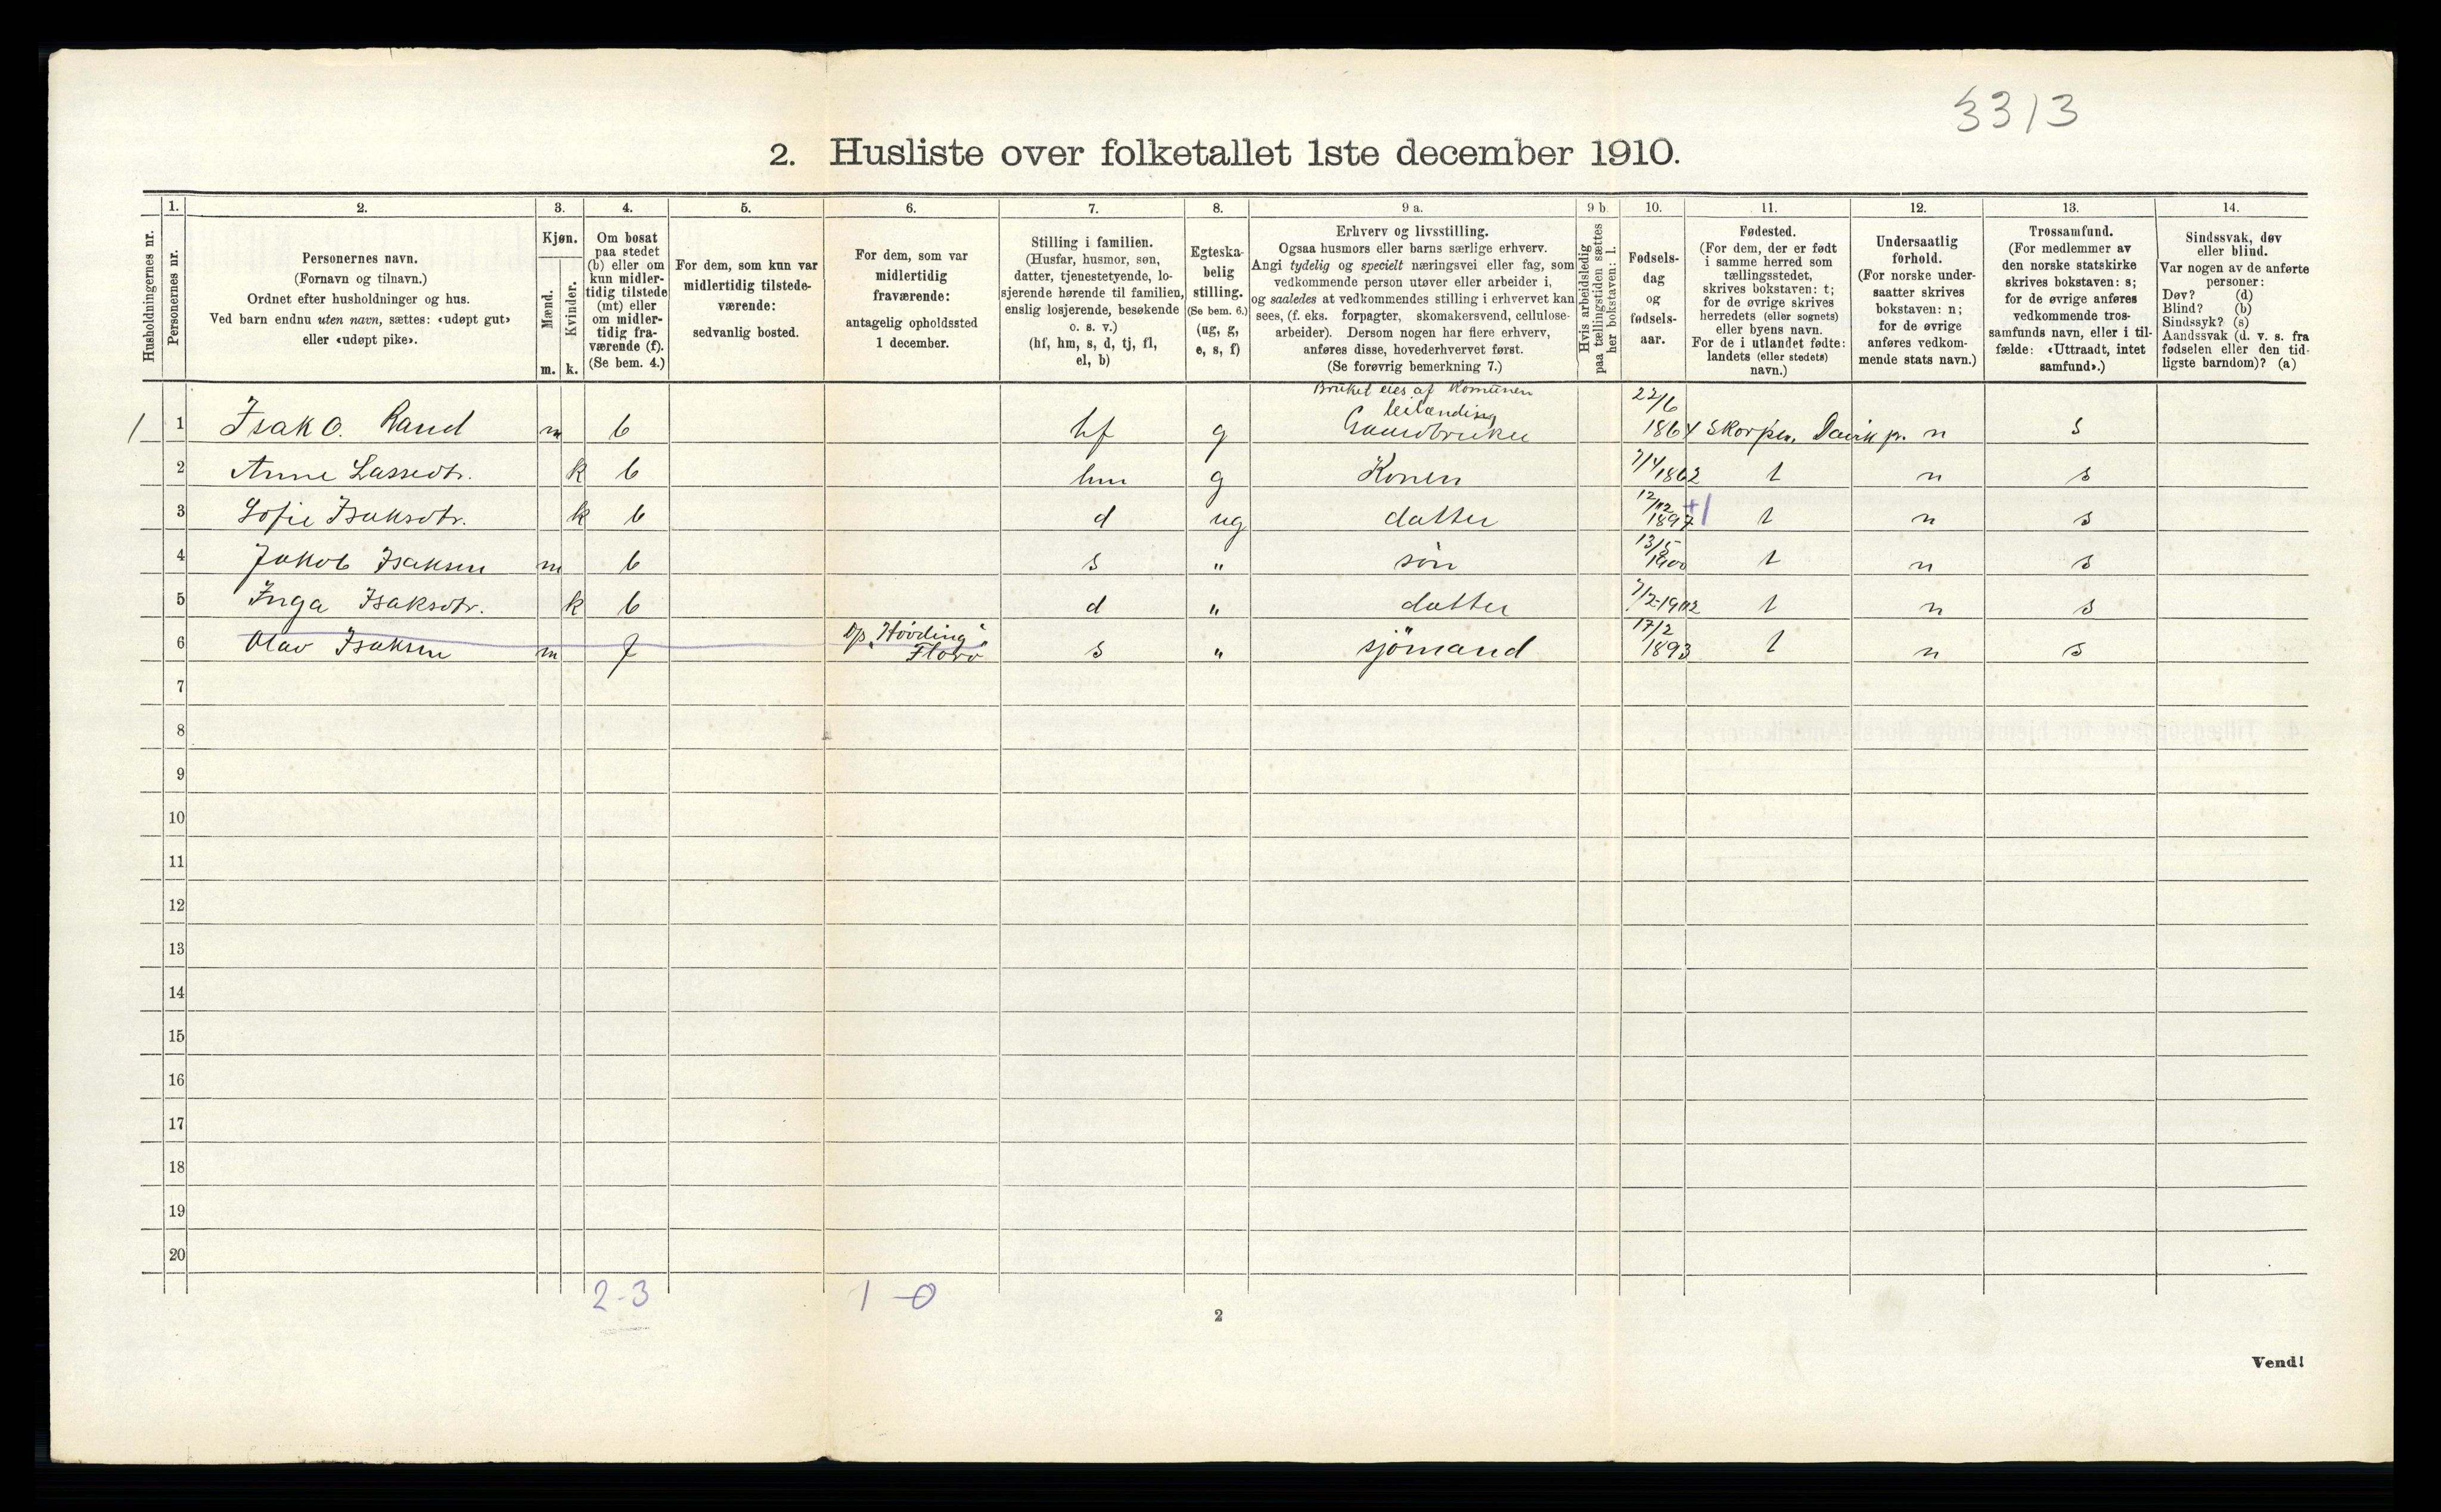 3313
2. Husliste over folketallet 1ste december 1910.
Husholdningernes nr.
1.
Personernes nr.
2.
Personernes navn.
(Fornavn og tilnavn.)
Ordnet efter husholdninger og hus.
Ved barn endnu uten navn, sættes: «udøpt gut»
eller «udøpt pike».
3.
Kjøn.
Mænd.
Kvinder.
m. k.
4.
Om bosat
paa stedet
(b) eller om
kun midler-
tidig tilstede
(mt) eller
om midler-
tidig fra-
værende (f).
(Se bem. 4.)
5.
For dem, som kun var
midlertidig tilstede-
værende:
sedvanlig bosted.
6.
For dem, som var
midlertidig
fraværende:
antagelig opholdssted
1 december.
7.
Stilling i familien.
(Husfar, husmor, søn,
datter, tjenestetyende, lo-
sjerende hørende til familien,
enslig losjerende, besøkende
o. s. v.)
(hf, hm, s, d, tj, fl,
el, b)
8.
Egteska-
belig
stilling.
(Se bem. 6.)
(ug, g,
e, s, f)
9 a.
Erhverv og livsstilling.
Ogsaa husmors eller barns særlige erhverv.
Angi tydelig og specielt næringsvei eller fag, som
vedkommende person utøver eller arbeider i,
og saaledes at vedkommendes stilling i erhvervet kan
sees, (f. eks. forpagter, skomakersvend, cellulose-
arbeider). Dersom nogen har flere erhverv,
anføres disse, hovederhvervet først.
(Se forøvrig bemerkning 7.)
9 b
Hvis arbeidsledig
paa tællingstiden sættes
her bokstaven: l.
10.
Fødsels-
dag
og
fødsels-
aar.
11.
Fødested.
(For dem, der er født
i samme herred som
tællingsstedet,
skrives bokstaven: t;
for de øvrige skrives
herredets (eller sognets)
eller byens navn.
For de i utlandet fødte:
landets (eller stedets)
navn.)
12.
Undersaatlig
forhold.
(For norske under-
saatter skrives
bokstaven: n;
for de øvrige
anføres vedkom-
mende stats navn.)
13.
Trossamfund.
(For medlemmer av
den norske statskirke
skrives bokstaven: s;
for de øvrige anføres
vedkommende tros-
samfunds navn, eller i til-
fælde: «Uttraadt, intet
samfund».)
14.
Sindssvak, døv
eller blind.
Var nogen av de anførte
personer:
Døv? (d)
Blind? (b)
Sindssyk? (s)
Aandssvak (d. v. s. fra
fødselen eller den tid-
ligste barndom)? (a)
Bruket eies af Komunen
leilænding
1 1 Isak O. Rand m b hf g Gaardbruker 22/6 1864 Skorpen, Davik pr. n s
2 Anne Lassedtr. k b hm g Konen 7/4 1862 t n s
3 Sofie Isaksdtr. k b d ug datter 12/12 1897 +1 t n s
4 Jakob Isaksen m b s " søn 13/5 1900 t n s
5 Inga Isaksdtr. k b d " datter 7/2-1902 t n s
6 Olav Isaksen m f D/s „Hövding" Florö s " sjömand 17/2 1893 t n s
7
8
9
10
11
12
13
14
15
16
17
18
19
20
2-3 1-0
2
Vend!